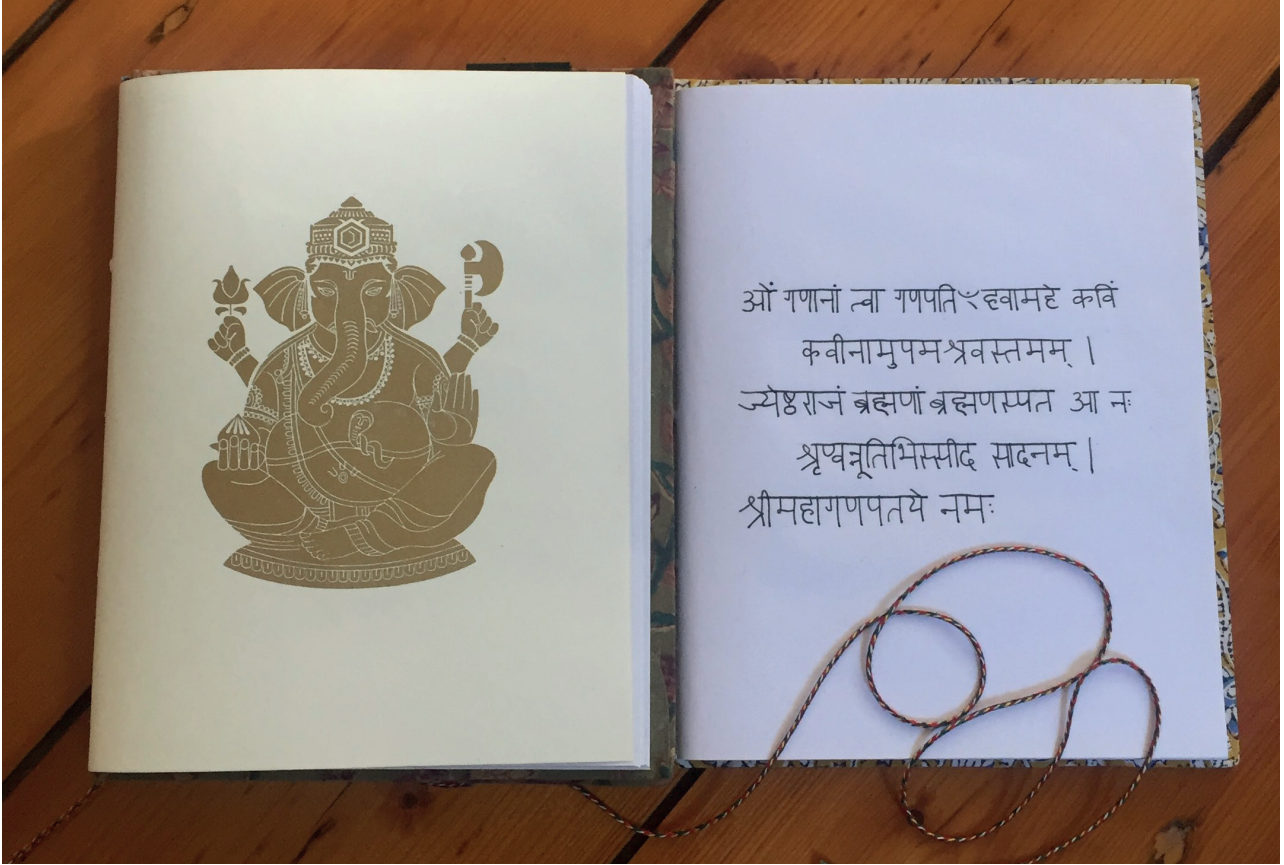 ओं गणानां त्वा गणपतिꣳहवामहे कविं
कवीनामुपमश्रवस्तमम् ।
ज्येष्ठराजं ब्रह्मणां ब्रह्मणस्पत आ नः
श्रृण्वन्नूतिभिस्सीद सादनम् ।
श्रीमहागणपतये नमः